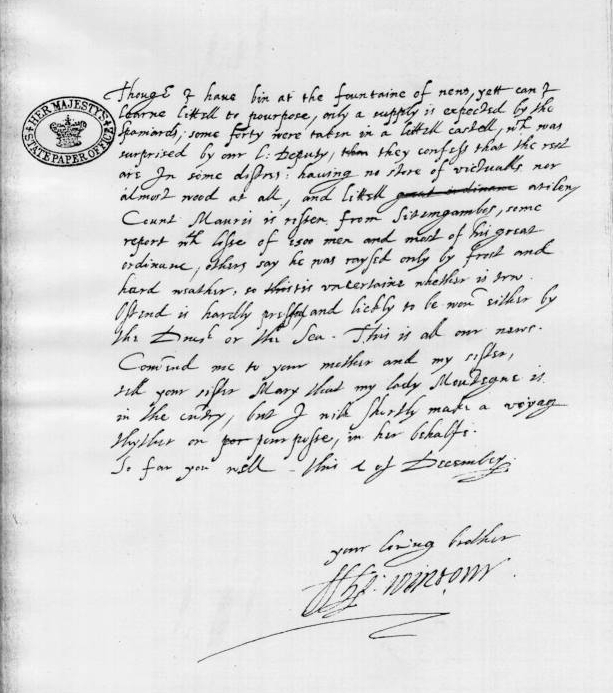 HER MAJESTY'S STATE PAPER OFFICE
Though I have bin at the fountaine of news, yett can I
learne littell to pourpose, only a supply is expected by the
Spaniards, some forty were taken in a littell castell, wch was
surprised by our L: Deputy, than they confess that the rest
are In some distres: having no store of victualls nor
almost wood at all, and littell great ordinance atilery
Count Mauris is rissen from Sitemgambos, some
report wth losse of 1500 men and most of his great
ordinane, others say he was raysed only by frost and
hard weather, so this is uncertaine whether is trw.
Ostend is hardly pressed and lickly to be won either by
the Duke or the Sea. This is all our news.
Comend me to your mother and my sister,
tell your sister Mary that my lady Mountegue is
in the cuntry, but I will shortly make a voyag
thyther on por pourposse, in her behalfe.
So far you well - this of December.
your loving brother
Tho: Wintour